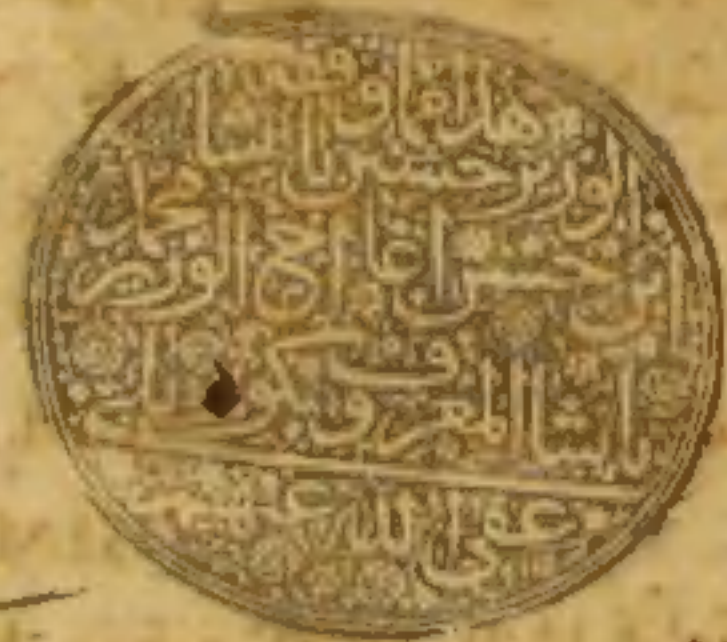 هذا ما وقفه
الوزير حسين باشا
ابن حسن اغا اخي الوزير محمد
باشا المعروف بكوپريلي
عفى الله عنهم